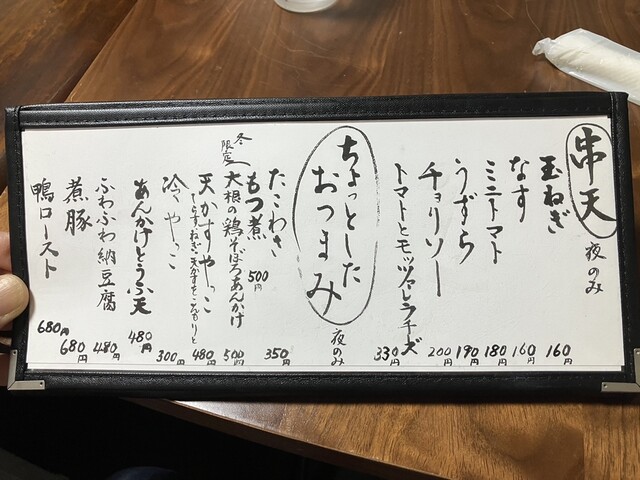 串天
夜のみ
玉ねぎ 160円
なす 160円
ミニトマト 180円
うずら 190円
チョリソー 200円
トマトとモッツァレラチーズ 330円
ちょっとした
おつまみ
夜のみ
たこわさ 350円
もつ煮 500円
冬限定 大根の鶏そぼろあんかけ 500円
天かすやっこ 480円
冷やっこ 300円
あんかけとうふ天 480円
ふわふわ納豆腐 480円
煮豚 680円
鴨ロースト 680円